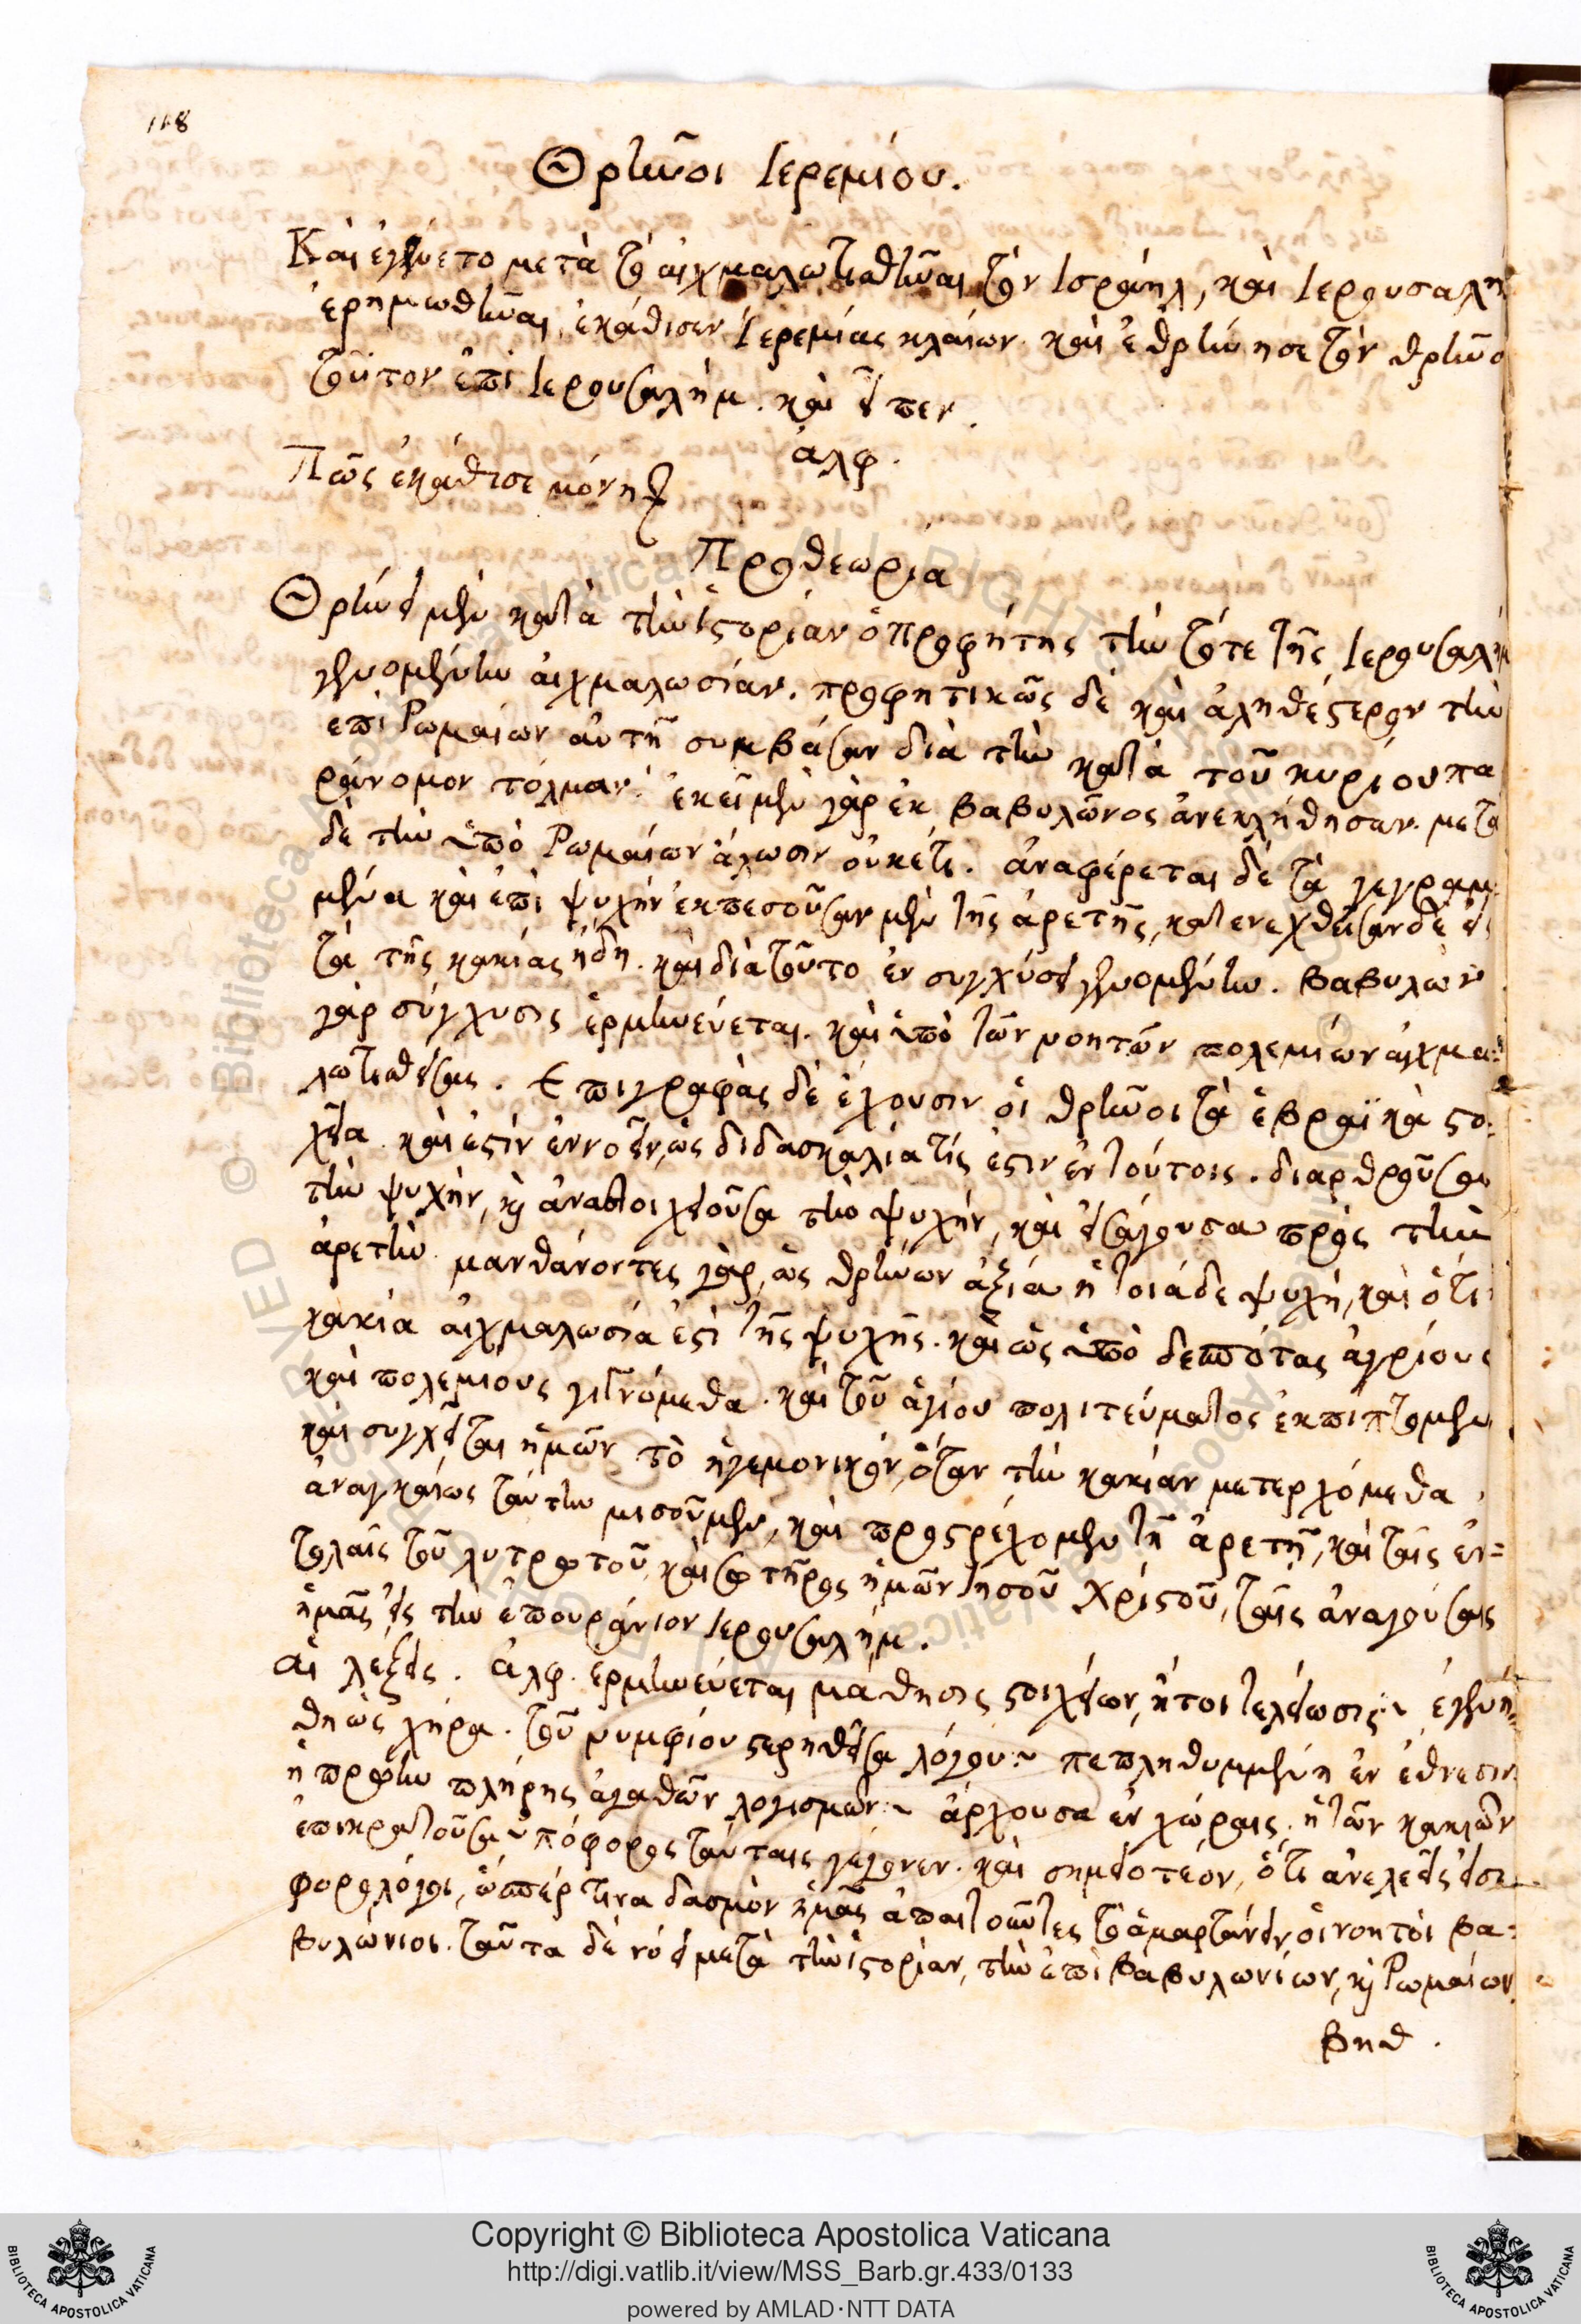 118
Θρῆνοι Ἰερεμίου.
Καὶ ἐγένετο μετὰ τὸ αἰχμαλωτισθῆναι τὸν Ἰσραήλ, καὶ Ἰερουσαλὴμ
ἐρημωθῆναι, ἐκάθισεν Ἰερεμίας κλαίων. καὶ ἐθρήνησε τὸν θρῆνο
τοῦτον ἐπὶ Ἰερουσαλήμ. καὶ εἶπεν.
ἀλφ.
Πῶς ἐκάθισε μόνη
Προθεωρία
Θρηνεῖ μὲν κατὰ τὴν ἱστορίαν ὁ προφήτης τὴν τότε τῆς Ἰερουσαλὴμ
γενομένην αἰχμαλωσίαν. προφητικῶς δὲ καὶ ἀληθέστερον τὴν
ἐπὶ Ῥωμαίων αὐτῇ συμβᾶσαν διὰ τὴν κατὰ τοῦ κυρίου πα
ράνομον τόλμαν. ἐκεῖ μὲν γὰρ ἐκ Βαβυλῶνος ἀνεκλήθησαν. μετὰ
δὲ τὴν ὑπὸ Ῥωμαίων ἅλωσιν οὐκέτι. ἀναφέρεται δὲ τὰ γεγραμ
μένα καὶ ἐπὶ ψυχὴν ἐκπεσοῦσαν μὲν τῆς ἀρετῆς, κατενεχθεῖσαν δὲ εἰς
τὰ τῆς κακίας ἤδη. καὶ διὰ τοῦτο ἐν συγχύσει γενομένην. Βαβυλὼν
γὰρ σύγχυσις ἑρμηνεύεται. καὶ ὑπὸ τῶν νοητῶν πολεμίων αἰχμα
λωτισθείσας. Ἐπιγραφὰς δὲ ἔχουσιν οἱ θρῆνοι τὰ ἑβραϊκὰ στο
χεῖα. καὶ ἐστὶν ἐννοεῖν, ὡς διδασκαλία τίς ἐστιν ἐν τούτοις. διαρθροῦσα
τὴν ψυχήν, κ ἀναστοιχειοῦσα τὴν ψυχήν, καὶ εἰσάγουσα πρὸς τὴν
ἀρετήν. μανθάνοντες γὰρ, ὡς θρήνων ἀξία ἡ τοιάδε ψυχή, καὶ ὅτι
κακία αἰχμαλωσία ἐστὶ τῆς ψυχῆς. καὶ ὡς ὑπὸ δεσπότας ἀγρίους
καὶ πολεμίους γινόμεθα. καὶ τοῦ ἁγίου πολιτεύματος ἐκπίπτομεν
καὶ συγχεῖται ἡμῶν τὸ ἡγεμονικόν, ὅταν τὴν κακίαν μετερχόμεθα,
ἀναγκαίως ταύτην μισοῦμεν, καὶ προστρέχομεν τῇ ἀρετῇ, καὶ ταῖς ἐν=
τολαῖς τοῦ λυτρωτοῦ, καὶ σωτῆρος ἡμῶν Ἰησοῦ Χριστοῦ, ταῖς ἀναγούσαις
ἡμᾶς εἰς τὴν ἐπουράνιον Ἰερουσαλήμ.
αἱ λέξεις. ἀλφ. ἑρμηνεύεται μάθησις στοιχείων, ἤτοι τελείωσις ~ ἐγενή
θη ὡς χήρα. τοῦ νυμφίου στερηθεῖσα λόγου ~ πεπληθυμμένη ἐν ἔθνεσιν.
ἡ πρώην πλήρης ἀγαθῶν λογισμῶν ~ ἄρχουσα ἐν χώραις. ἡ τῶν κακιῶν
ἐπικρατοῦσα ὑπόφορος ταύταις γέγονεν. καὶ σημειοτέον, ὅτι ἀνελεεῖς εἰσι
φορολόγοι, ὥσπέρ τινα δασμὸν ἡμᾶς ἀπαιτοῦντες τὸ ἁμαρτάνειν, οἱ νοητοὶ Βα=
βυλώνιοι. ταῦτα δὲ νόει μετὰ τὴν ἱστορίαν, τὴν ἐπὶ Βαβυλωνίων, κ Ῥωμαίων
βηθ.
Copyright © Biblioteca Apostolica Vaticana
http://digi.vatlib.it/view/MSS_Barb.gr.433/0133
powered by AMLAD·NTT DATA
BIBLIOTECA APOSTOLICA VATICANA
BIBLIOTECA APOSTOLICA VATICANA